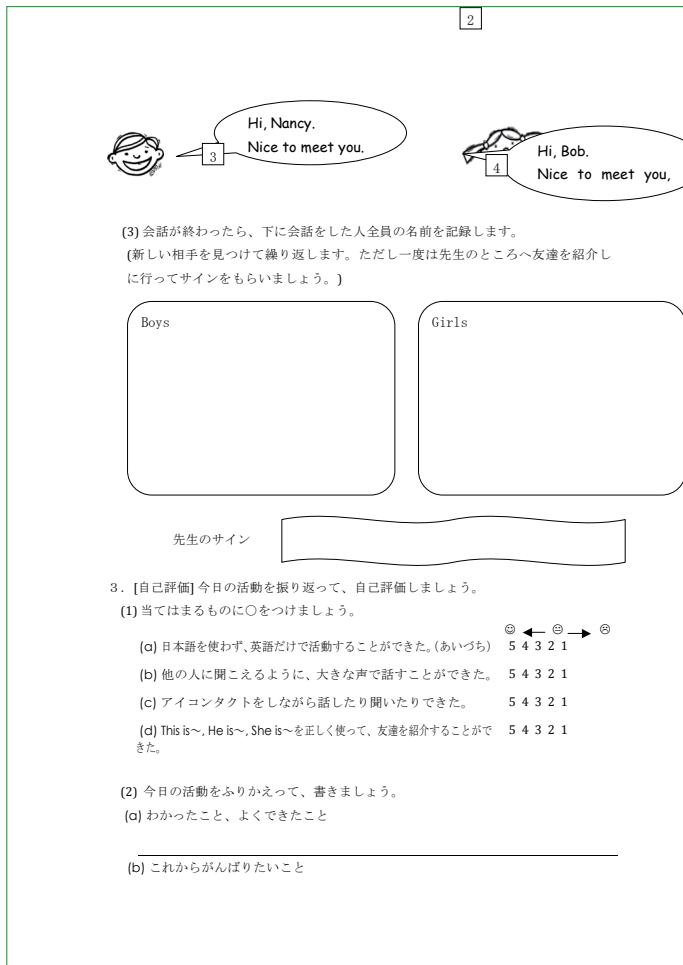 2
Hi, Nancy.
Nice to meet you.
3
Hi, Bob.
Nice to meet you,
4
(3) 会話が終わったら、下に会話をした人全員の名前を記録します。
(新しい相手を見つけて繰り返します。ただし一度は先生のところへ友達を紹介し
に行ってサインをもらいましょう。)
Boys
Girls
先生のサイン
3. [自己評価] 今日の活動を振り返って、自己評価しましょう。
(1) 当てはまるものに○をつけましょう。
(a) 日本語を使わず、英語だけで活動することができた。(あいづち) 5 4 3 2 1
(b) 他の人に聞こえるように、大きな声で話すことができた。 5 4 3 2 1
(c) アイコンタクトをしながら話したり聞いたりできた。 5 4 3 2 1
(d) This is～, He is～, She is～を正しく使って、友達を紹介することがで 5 4 3 2 1
きた。
(2) 今日の活動をふりかえって、書きましょう。
(a) わかったこと、よくできたこと
(b) これからがんばりたいこと